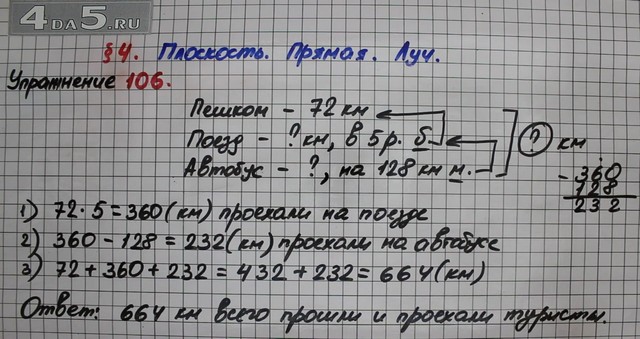 4DA5.RU
§4. Плоскость. Прямая. Луч.
Упражнение 106.
Пешком - 72 км
Поезд - ? км, в 5 р. б.
Автобус - ?, на 128 км м.
? км
- 360
128
232
1) 72 · 5 = 360 (км) проехали на поезде
2) 360 - 128 = 232 (км) проехали на автобусе
3) 72 + 360 + 232 = 432 + 232 = 664 (км)
Ответ: 664 км всего прошли и проехали туристы.